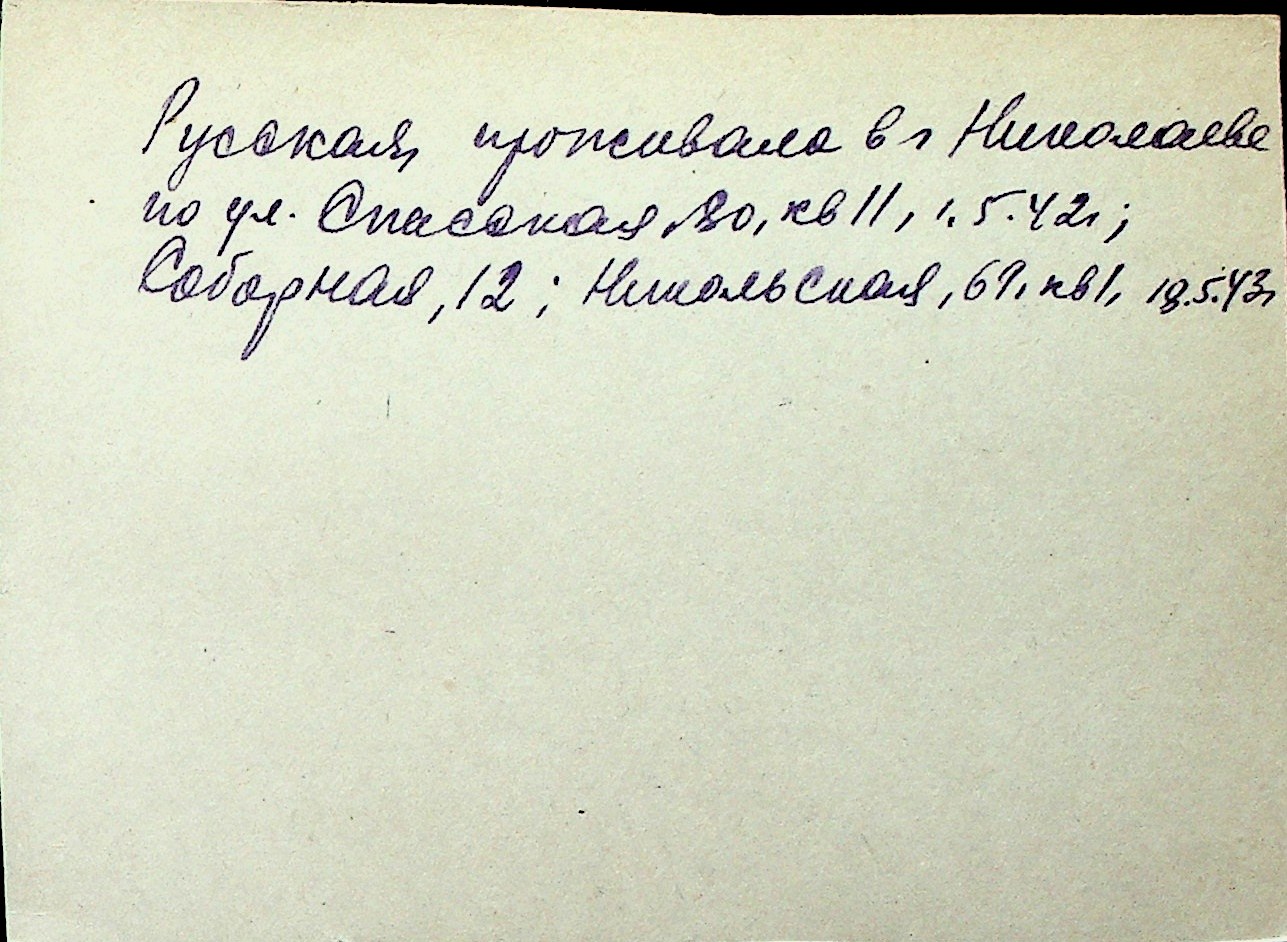 Русская, проживала в г Николаеве
по ул. Спасская, 80, кв 11, 1.5.42г;
Соборная, 12; Никольская, 69, кв 1, 19.5.43г